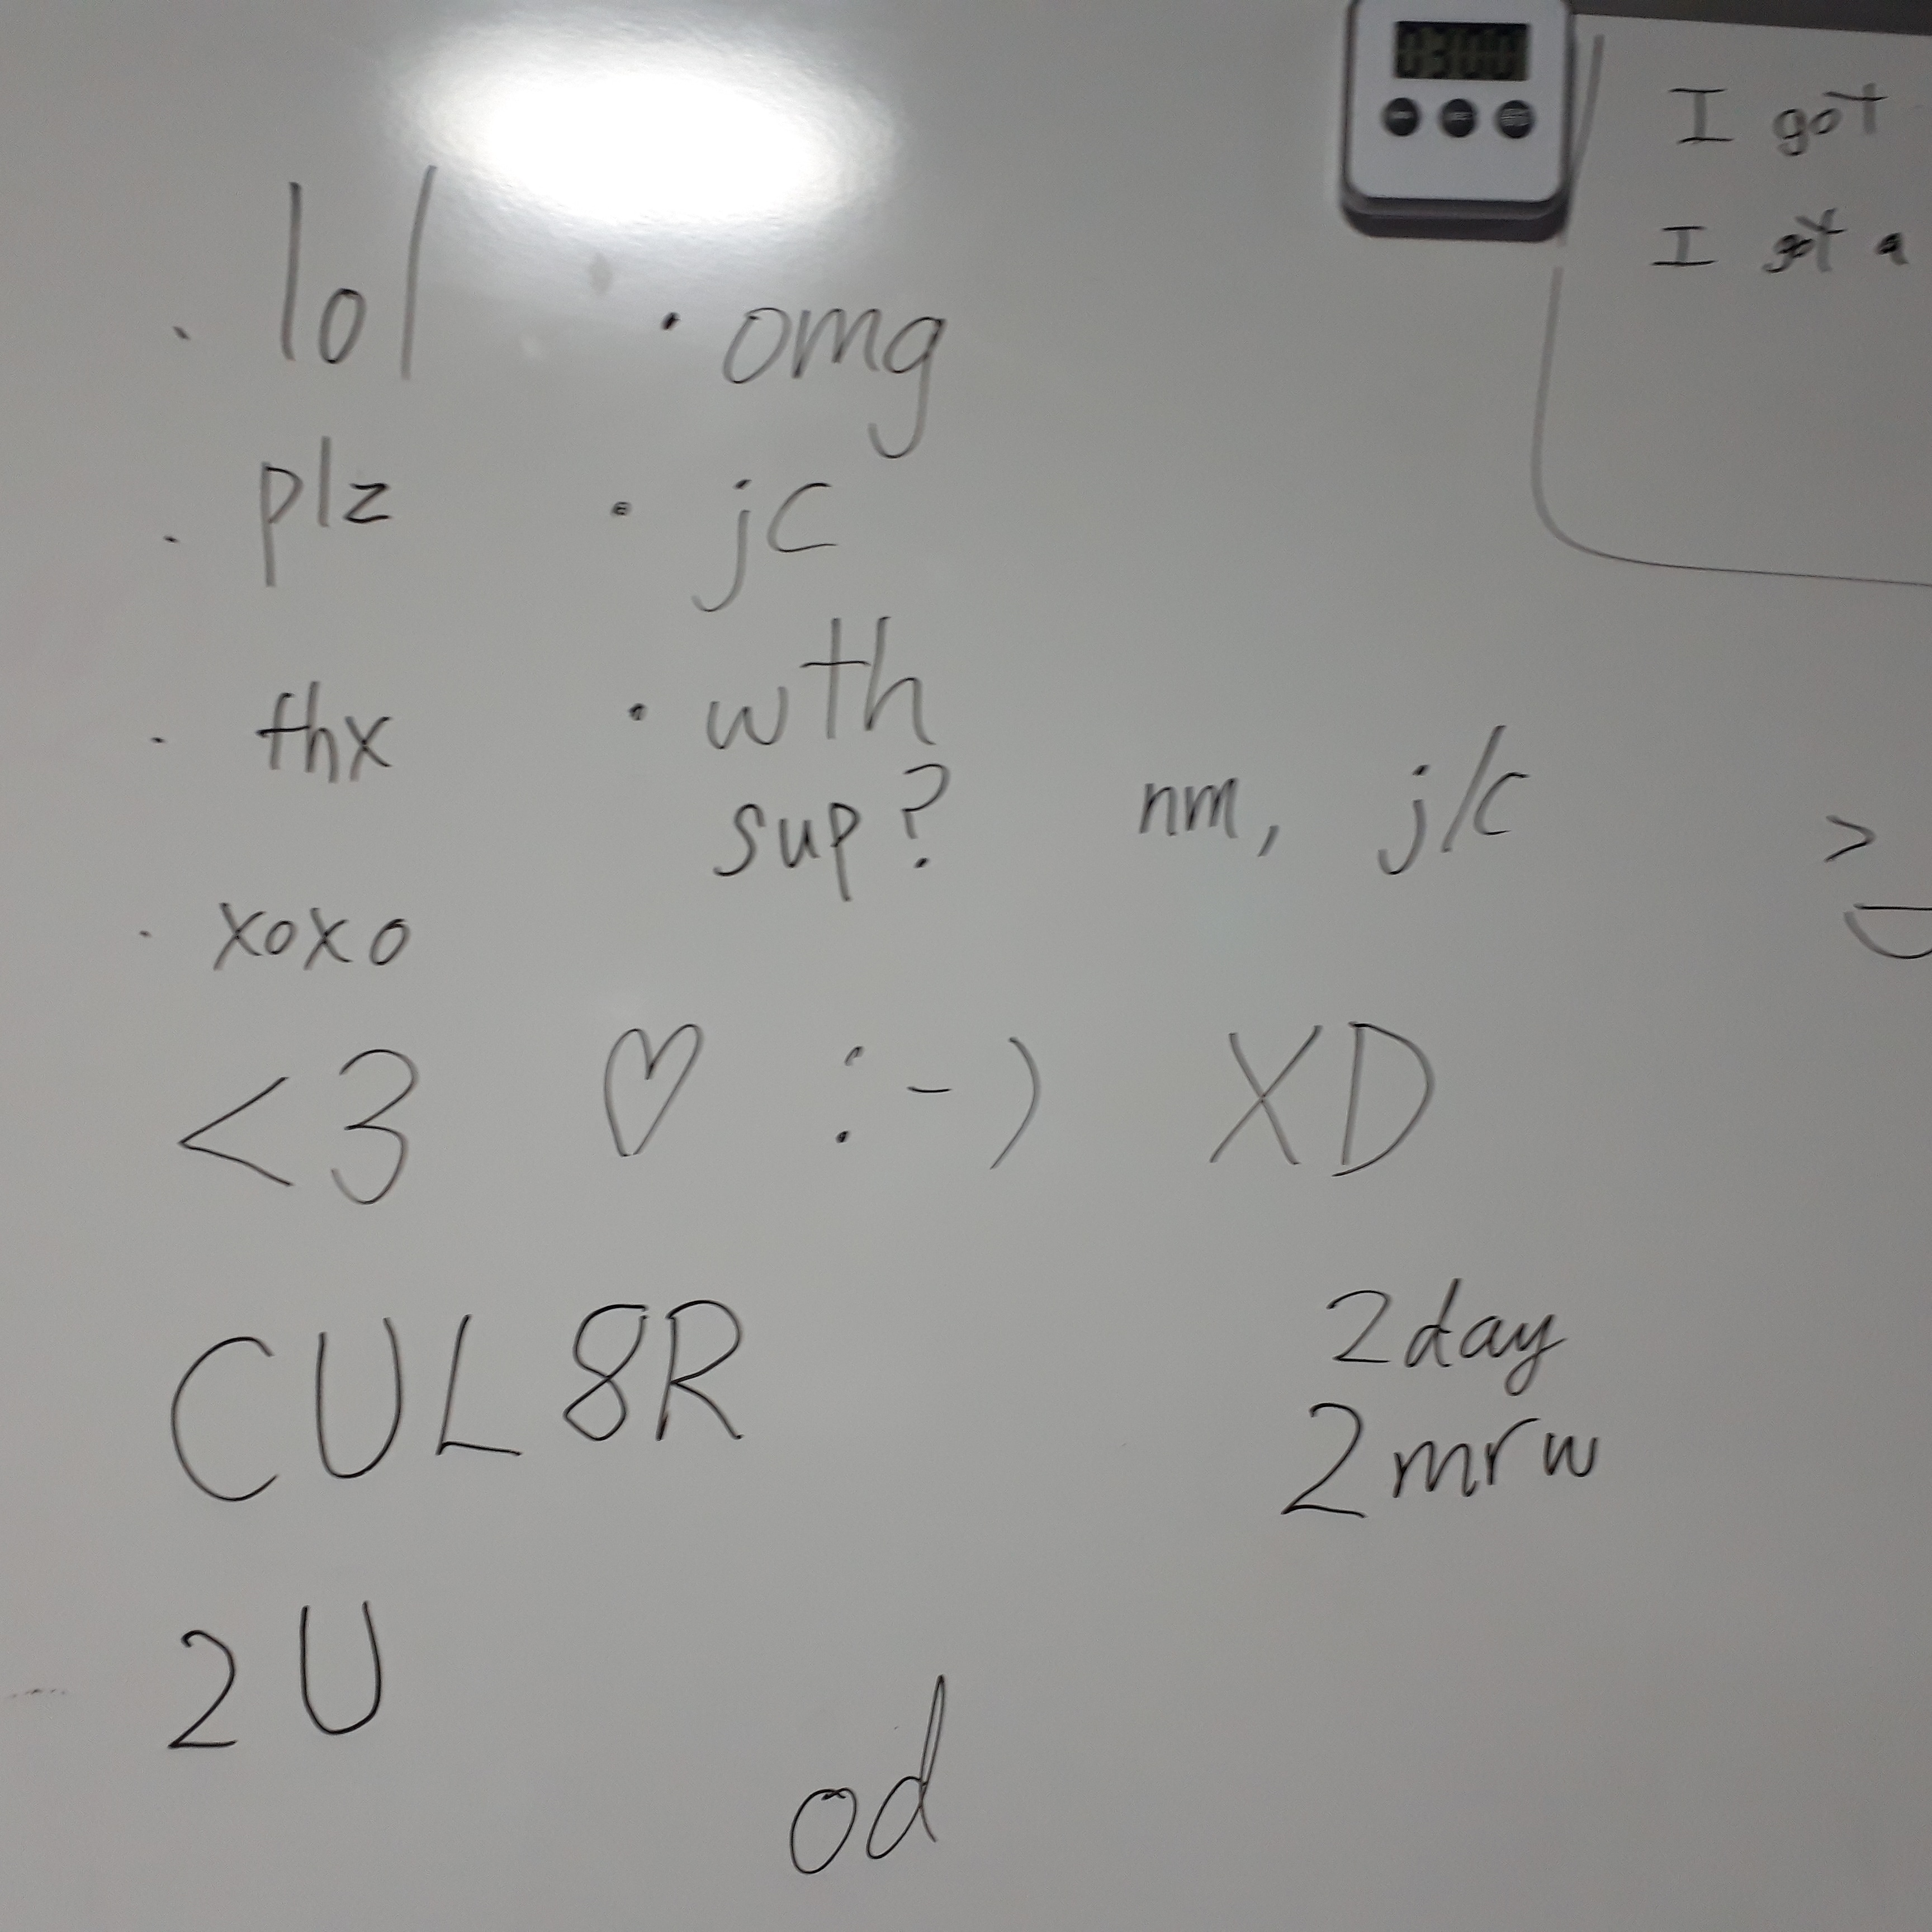 I got
I got a
· lol · omg
· plz · jc
· thx · wth
sup? nm, j/c >
· xoxo
<3 ♡ :-) XD
CUL8R
2day
2mrw
2U
od